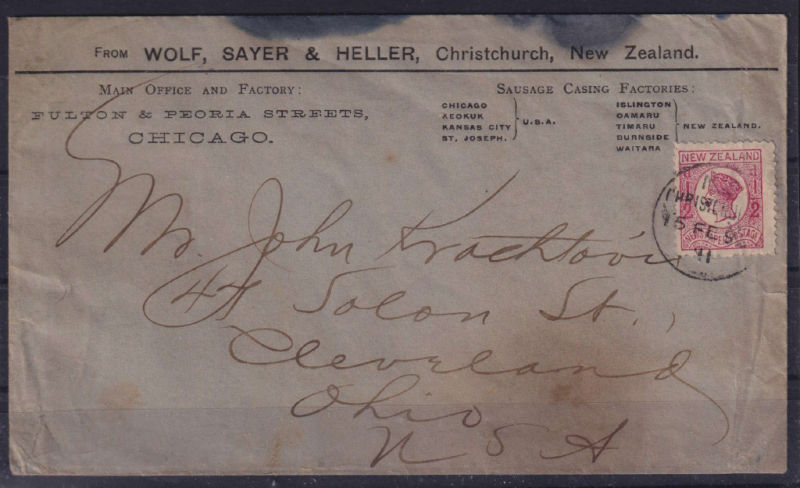 From WOLF, SAYER & HELLER, Christchurch, New Zealand.
Main Office and Factory:
FULTON & PEORIA STREETS,
CHICAGO.
Sausage Casing Factories:
CHICAGO
KEOKUK
KANSAS CITY
ST. JOSEPH.
U.S.A.
ISLINGTON
OAMARU
TIMARU
BURNSIDE
WAITARA
NEW ZEALAND.
NEW ZEALAND
1 2
CHRISTCH
15 FE 9
11
Mr. John
47 Solon St.,
Cleveland
Ohio
U S A